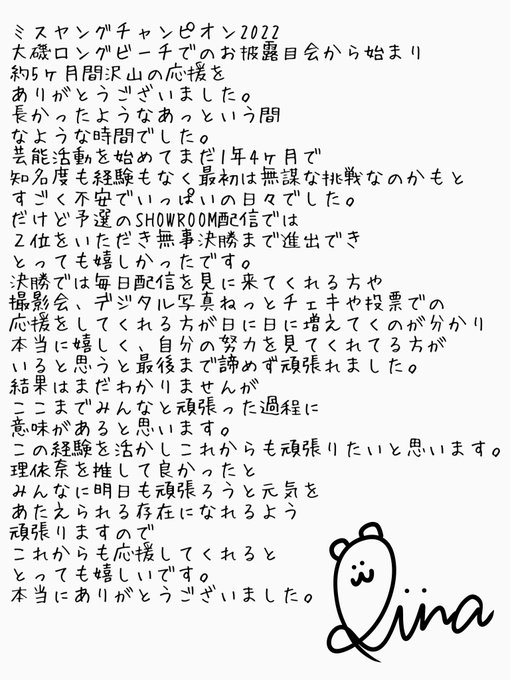 ミスヤングチャンピオン2022
大磯ロングビーチでのお披露目会から始まり
約5ヶ月間沢山の応援を
ありがとうございました。
長かったようなあっという間
なような時間でした。
芸能活動を始めてまだ1年4ヶ月で
知名度も経験もなく最初は無謀な挑戦なのかもと
すごく不安でいっぱいの日々でした。
だけど予選のSHOWROOM配信では
2位をいただき無事決勝まで進出でき
とっても嬉しかったです。
決勝では毎日配信を見に来てくれる方や
撮影会、デジタル写真ねっとチェキや投票での
応援をしてくれる方が日に日に増えてくのが分かり
本当に嬉しく、自分の努力を見てくれてる方が
いると思うと最後まで諦めず頑張れました。
結果はまだわかりませんが
ここまでみんなと頑張った過程に
意味があると思います。
この経験を活かしこれからも頑張りたいと思います。
理依奈を推して良かったと
みんなに明日も頑張ろうと元気を
あたえられる存在になれるよう
頑張りますので
これからも応援してくれると
とっても嬉しいです。
本当にありがとうございました。
Riina